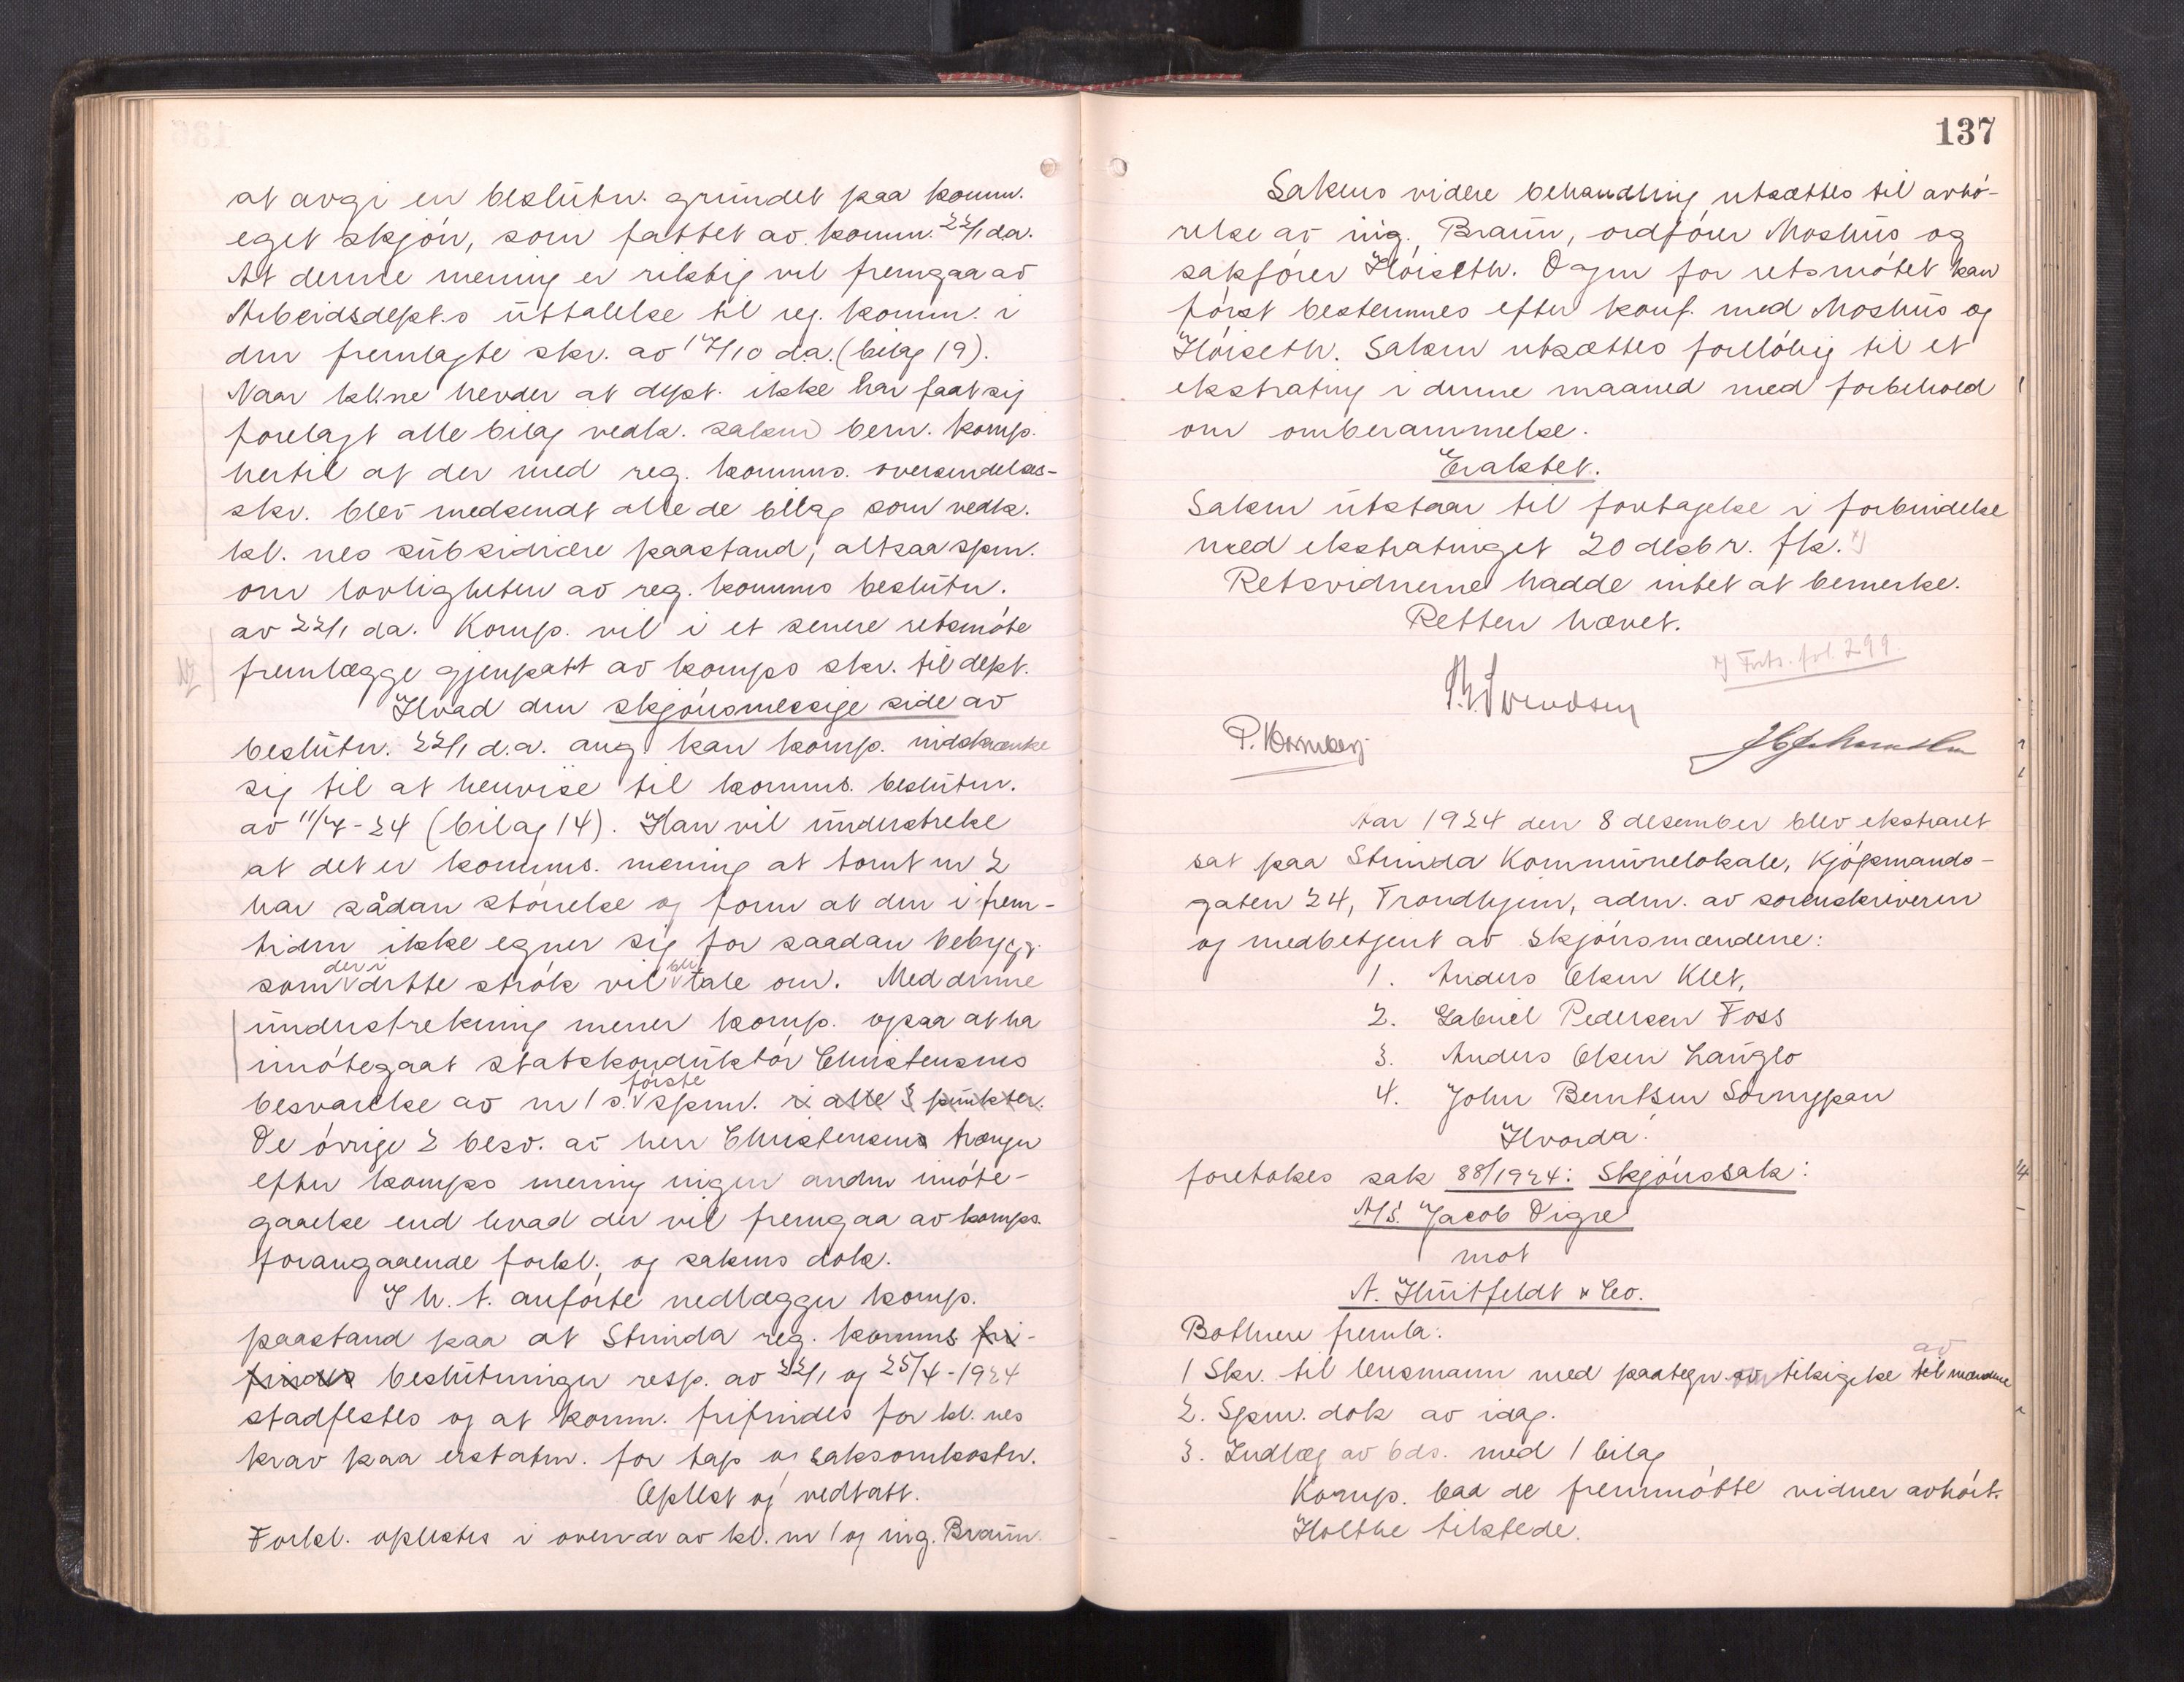 at avgi en beslutn. grundet paa komm.
eget skjøn, som fattet av komm. 22/1 da.
At denne mening er riktig vil fremgaa av
Arbeidsdept.s uttalelse til reg. komm. i
den fremlagte skr. av 17/10 da. (bilag 19).
Naar kl.ne hevder at dept. ikke har faat sig
forelagt alle bilag vedk. saken bem. komp.
hertil at der med reg. komms. oversendelses-
skr. blev medsendt alle de bilag som vedk.
kl. nes subsidiære paastand, altsaa spm.
om lovligheten av reg. komms beslutn.
av 22/1 da. Komp. vil i et senere retsmøte
fremlægge gjenpart av komps skr. til dept.
Hvad den skjønsmessige side av
beslutn. 22/1 d.a. ang. kan komp. indskrænke
sig til at henvise til komms. beslutn.
av 11/4-24 (bilag 14). Han vil understreke
at det er komms. mening at tomt nr 2
har sådan størrelse og form at den i frem-
tiden ikke egner sig for saadan bebygg.
som der i dette strøk vil bli tale om. Med denne
understrekning mener komp. ogsaa at ha
imøtegaat statskonduktør Christensens
besvarelse av nr 1 s. første spm. i alle 3 punkter.
De øvrige 2 besv. av herr Christensens trænger
efter komps mening ingen anden imøte-
gaaelse end hvad der vil fremgaa av komps.
forangaaende forkl. og sakens dok.
I h. t. anførte nedlægger komp.
paastand paa at Strinda reg. komms fri-
findes beslutninger resp. av 22/1 og 25/4-1924
stadfestes og at komm. frifindes for kl. nes
krav paa erstatn. for tap og saksomkostn.
Oplest og vedtatt.
Forkl. oplestes i overvær av kl. nr 1 og ing. Braun.
137
Sakens videre behandling utsættes til avhø-
relse av ing. Braun, ordfører Moshus og
sakfører Høiseth. Dagen for retsmøtet kan
først bestemmes efter konf. med Moshus og
Høiseth. Saken utsættes foreløbig til et
ekstrating i denne maaned med forbehold
om omberammelse.
Eraktet.
Saken utstaar til foretagelse i forbindelse
med ekstratinget 20 desbr. fk. x)
Retsvidnerne hadde intet at bemerke.
Retten hævet.
x) Forts. fol. 299.
Aar 1924 den 8 desember blev ekstraret
sat paa Strinda Kommunelokale, Kjøpmands-
gaten 24, Trondhjem, adm. av sorenskriveren
og medbetjent av skjønsmændene:
1. Anders Olsen Klet,
2. Gabriel Pedersen Foss
3. Anders Olsen Langlo
4. John Berntsen Sornypan
Hvorda:
foretokes sak 88/1924: Skjønssak:
A/S. Jacob Digre
mot
A. Huitfeldt & Co.
Bothnere fremla:
1 Skr. til lensmann med paategn. om tilsigelse til av mændene
2. Spm. dok av idag.
3. Indlæg av bds. med 1 bilag
Komp. bad de fremmøtte vidner avhørt.
Holthe tilstede.